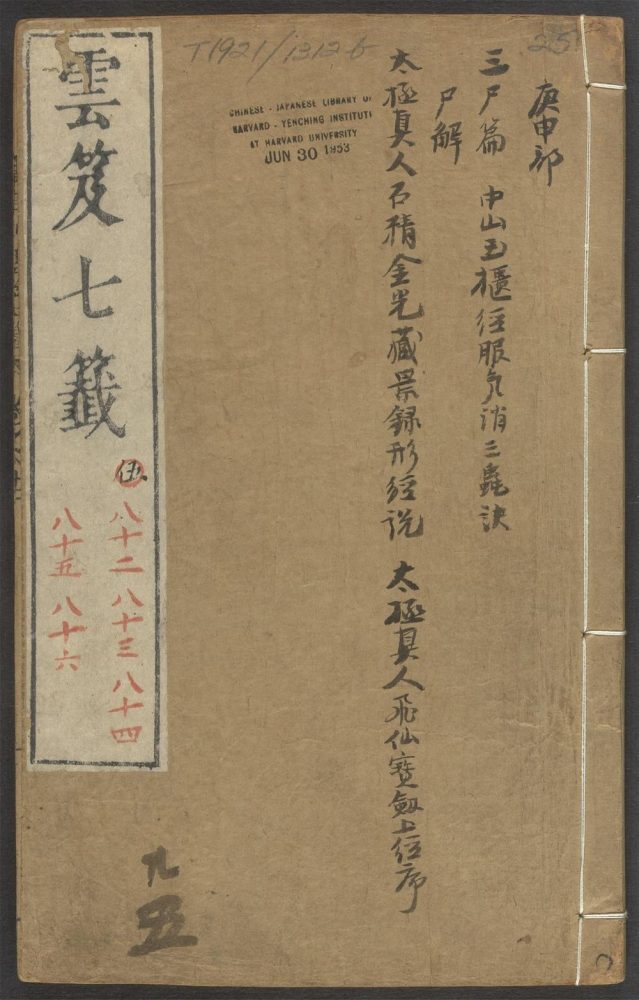 25
庚申部
三尸篇 中山玉櫃經服气消三蟲訣
尸解
太極真人石精金光藏景録形經说 太極真人飛仙寶劔上經序
T1921/1312b
CHINESE - JAPANESE LIBRARY OF
HARVARD - YENCHING INSTITUTE
AT HARVARD UNIVERSITY
JUN 30 1953
雲笈七籤
八十二 八十三 八十四
八十五 八十六
九
五